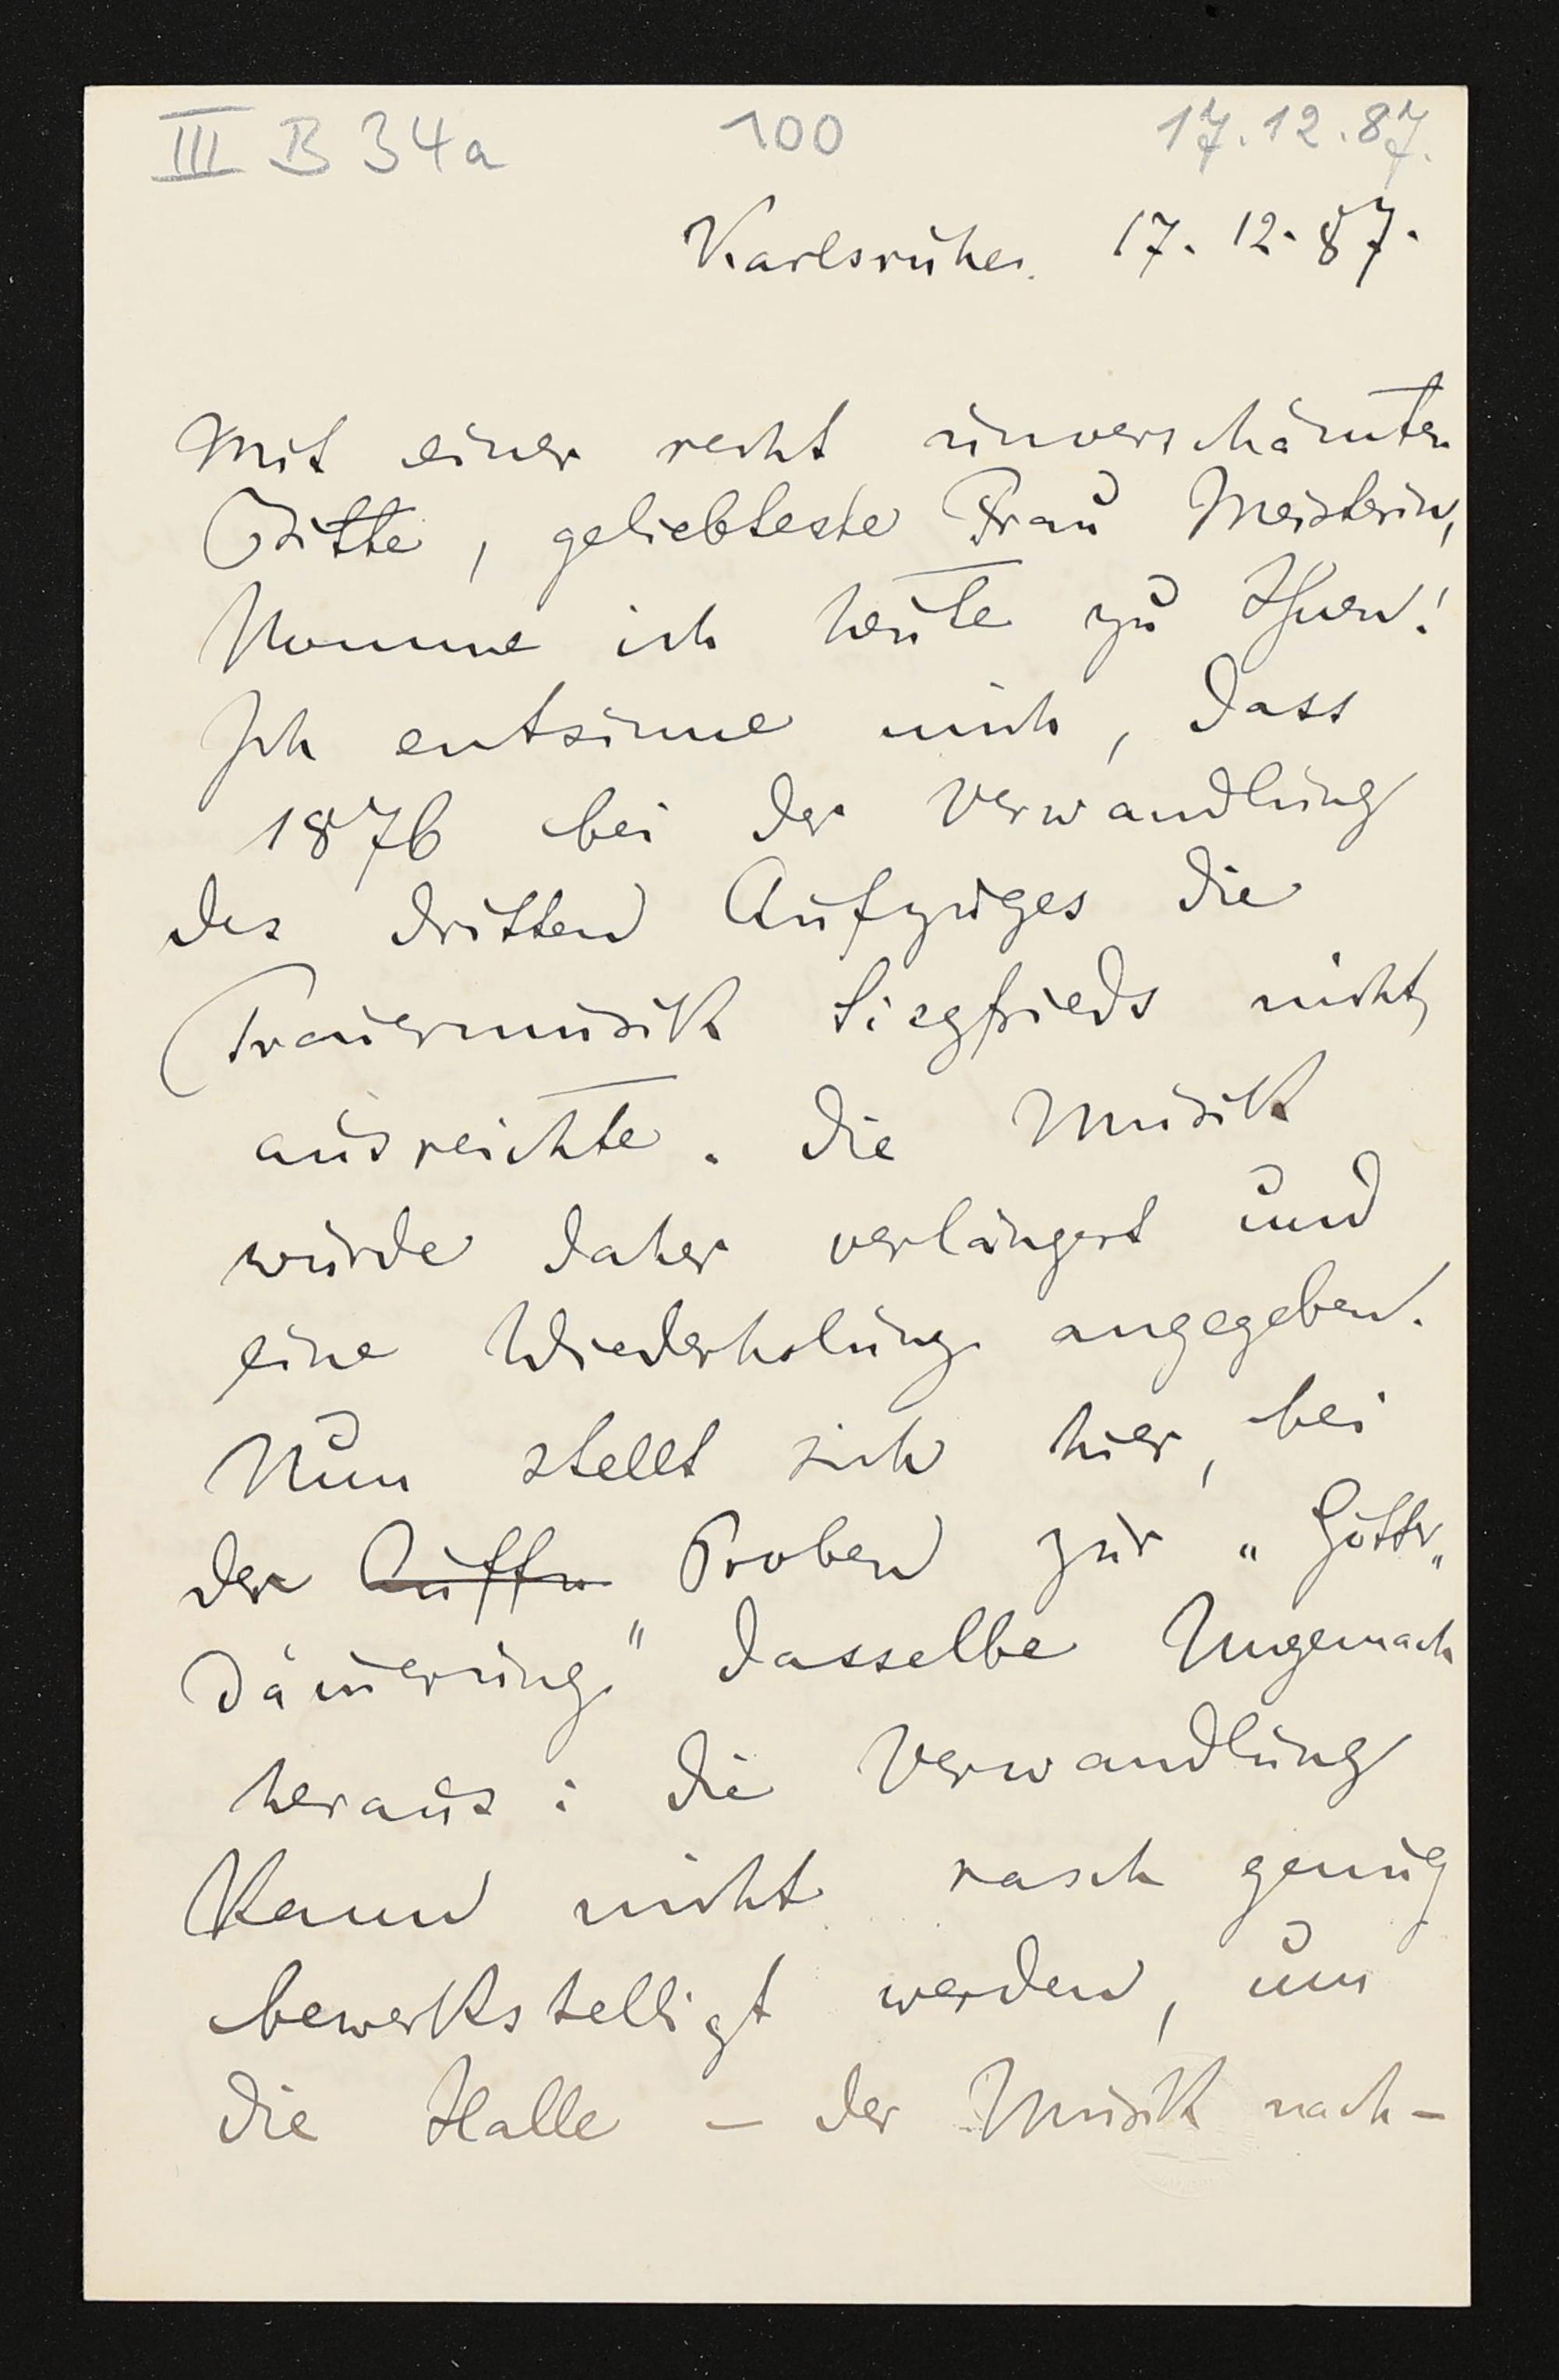 III B 34a 100 17.12.87.
Karlsruhe. 17. 12. 87.
Mit einer recht unverschämten
Bitte, geliebteste Frau Meisterin,
komme ich heute zu Ihnen!
Ich entsinne mich, dass
1876 bei der Verwandlung
des dritten Aufzuges die
Trauermusik Siegfrieds nicht
ausreichte. Die Musik
wurde daher verlängert und
eine Wiederholung angegeben.
Nun stellt sich hier, bei
der Auffu Proben zur „Götter„
dämerung" dasselbe Ungemach
heraus: die Verwandlung
kann nicht rasch genug
bewerkstelligt werden, um
die Halle – der Musik nach-